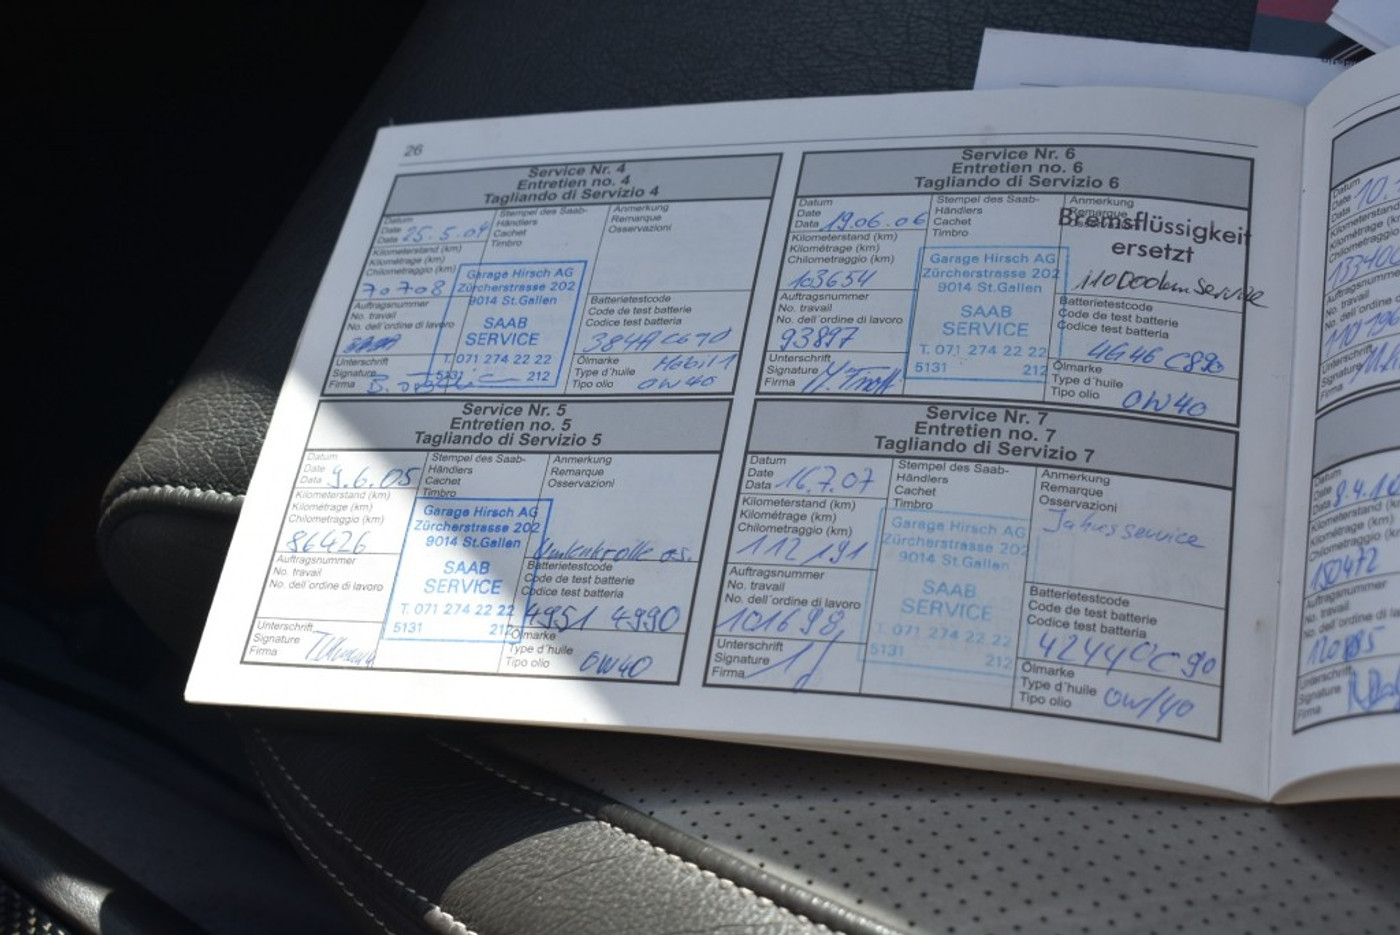 26
Service Nr. 4
Entretien no. 4
Tagliando di Servizio 4
Datum
Date
Data 25.5.04
Kilometerstand (km)
Kilométrage (km)
Chilometraggio (km)
70708
Auftragsnummer
No. travail
No. dell'ordine di lavoro
Unterschrift
Signature
Firma
Stempel des Saab-
Händlers
Cachet
Timbro
Garage Hirsch AG
Zürcherstrasse 202
9014 St.Gallen
SAAB
SERVICE
T. 071 274 22 22
5131 212
Anmerkung
Remarque
Osservazioni
Batterietestcode
Code de test batterie
Codice test batteria
Ölmarke Mobil 1
Type d'huile
Tipo olio 0W40
Service Nr. 5
Entretien no. 5
Tagliando di Servizio 5
Datum
Date
Data 9.6.05
Kilometerstand (km)
Kilométrage (km)
Chilometraggio (km)
86426
Auftragsnummer
No. travail
No. dell'ordine di lavoro
Unterschrift
Signature
Firma
Stempel des Saab-
Händlers
Cachet
Timbro
Garage Hirsch AG
Zürcherstrasse 202
9014 St.Gallen
SAAB
SERVICE
T. 071 274 22 22
5131 212
Anmerkung
Remarque
Osservazioni
Batterietestcode
Code de test batterie
Codice test batteria
4951 4990
Ölmarke
Type d'huile
Tipo olio 0W40
Service Nr. 6
Entretien no. 6
Tagliando di Servizio 6
Datum
Date
Data 19.06.06
Kilometerstand (km)
Kilométrage (km)
Chilometraggio (km)
103654
Auftragsnummer
No. travail
No. dell'ordine di lavoro
93897
Unterschrift
Signature
Firma
Stempel des Saab-
Händlers
Cachet
Timbro
Garage Hirsch AG
Zürcherstrasse 202
9014 St.Gallen
SAAB
SERVICE
T. 071 274 22 22
5131 212
Anmerkung
Remarque
Osservazioni
Bremsflüssigkeit
ersetzt
110000km Service
Batterietestcode
Code de test batterie
Codice test batteria
4G46 C890
Ölmarke
Type d'huile
Tipo olio 0W40
Service Nr. 7
Entretien no. 7
Tagliando di Servizio 7
Datum
Date
Data 16.7.07
Kilometerstand (km)
Kilométrage (km)
Chilometraggio (km)
112191
Auftragsnummer
No. travail
No. dell'ordine di lavoro
101698
Unterschrift
Signature
Firma
Stempel des Saab-
Händlers
Cachet
Timbro
Garage Hirsch AG
Zürcherstrasse 202
9014 St.Gallen
SAAB
SERVICE
T. 071 274 22 22
5131 212
Anmerkung
Remarque
Osservazioni
Jahresservice
Batterietestcode
Code de test batterie
Codice test batteria
4244OC90
Ölmarke
Type d'huile
Tipo olio 0W/40
Datum
Date
Data
Kilometerstand
Kilométrage
Chilometraggio
Auftragsnummer
No. travail
Unterschrift
Signature
Firma
Datum
Date
Data
Kilometerstand
Kilométrage
Chilometraggio
150472
Auftragsnummer
No. travail
No. dell'ordine di
Unterschrift
Signature
Firma